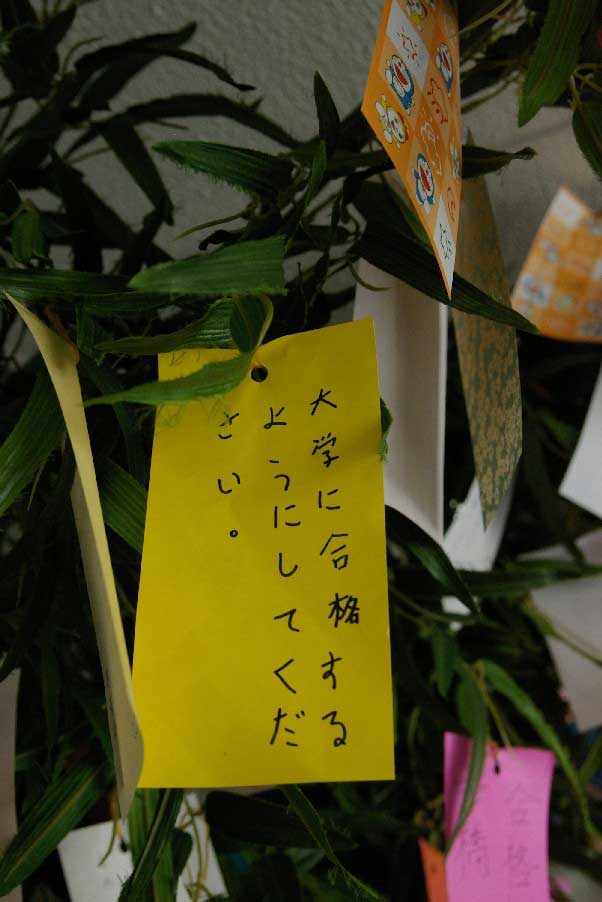 大学に合格する
ようにしてくだ
さい。
合格